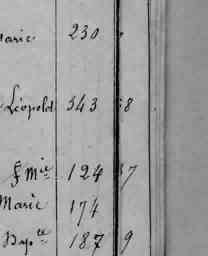 Marie 230
Léopold 543 58
f Mie 124 37
Marie 174
Bap.te 187 9